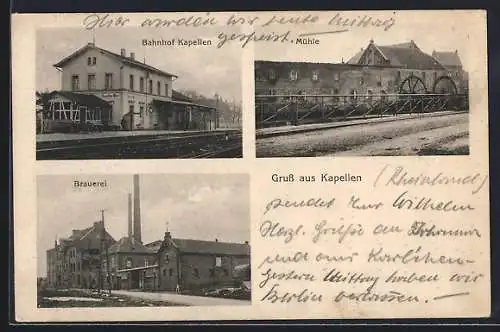 Hier wurden wir heute Mittag
gespeist.
Bahnhof Kapellen
Mühle
Brauerei
Gruß aus Kapellen
(Rheinland)
sendet Eur Wilhelm
Herzl. Grüße an
und aus
gestern Mittag haben wir
Berlin verlassen.